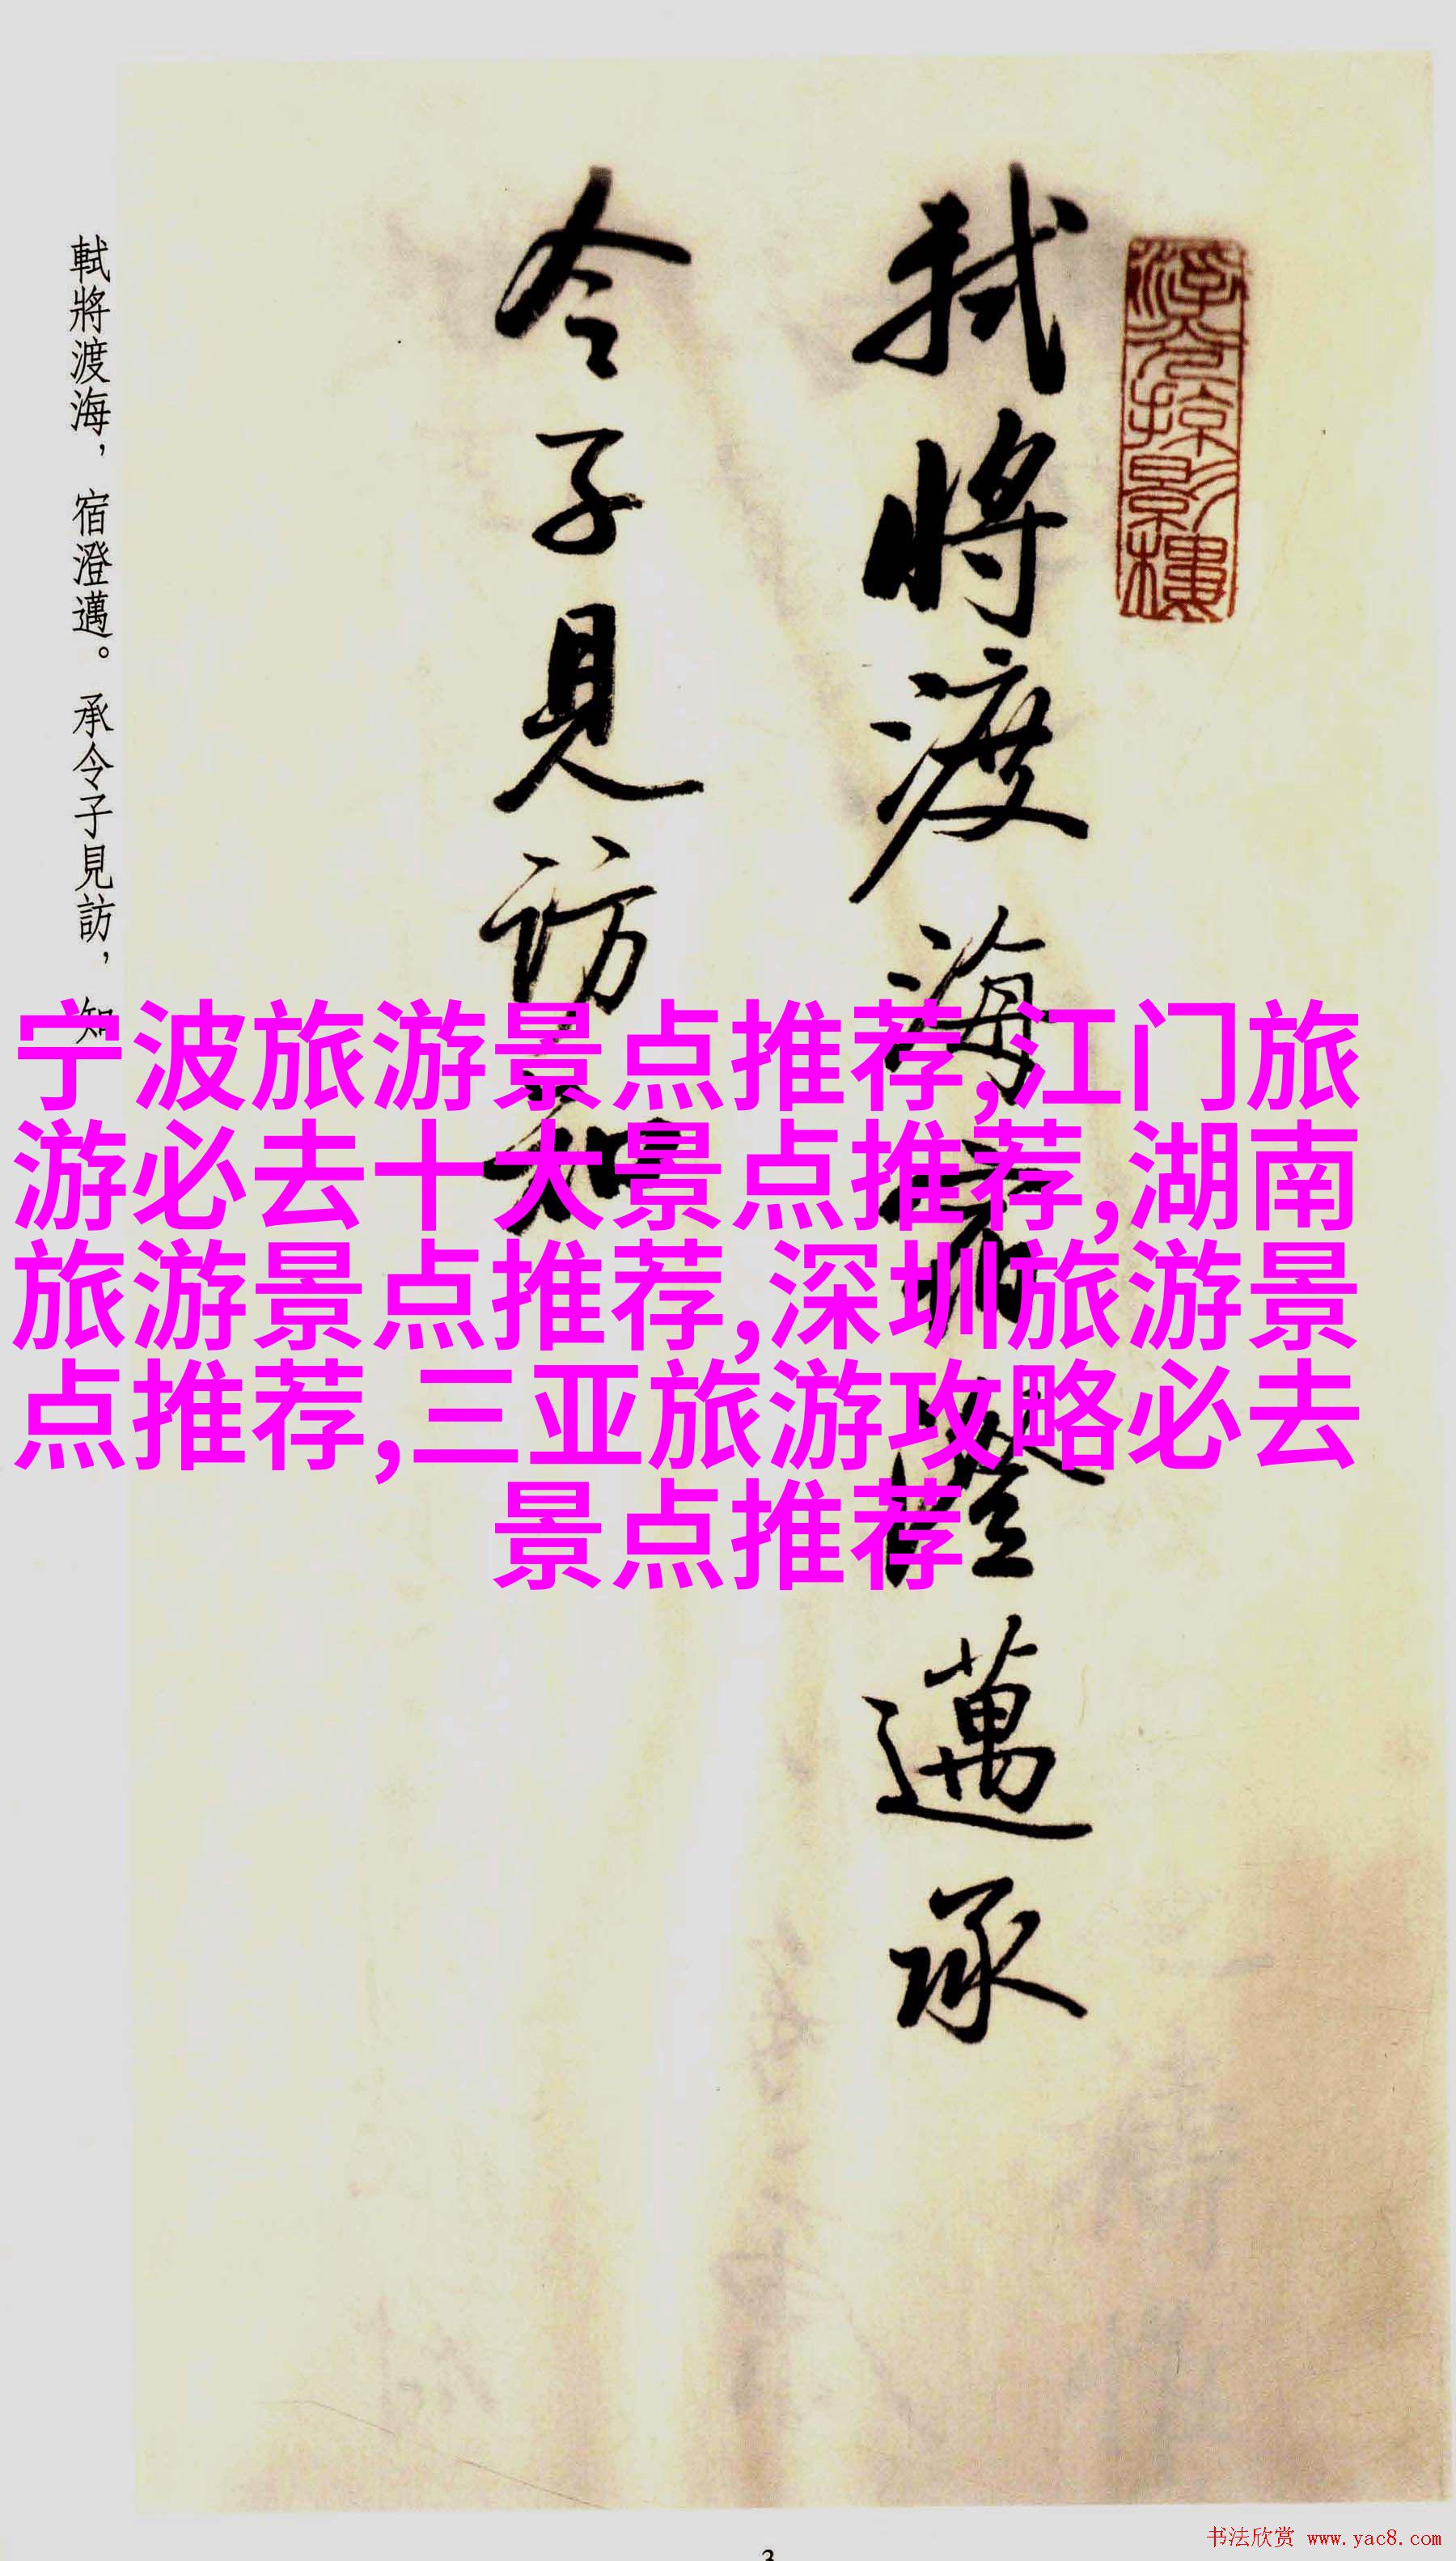 軾將渡海宿澄邁承
令子見訪知
軾將渡海，宿澄邁。承令子見訪，知
宁波旅游景点推荐,江门旅
游必去十大景点推荐,湖南
旅游景点推荐,深圳旅游景
点推荐,三亚旅游攻略必去
景点推荐
书法欣赏 www.yac8.com
3